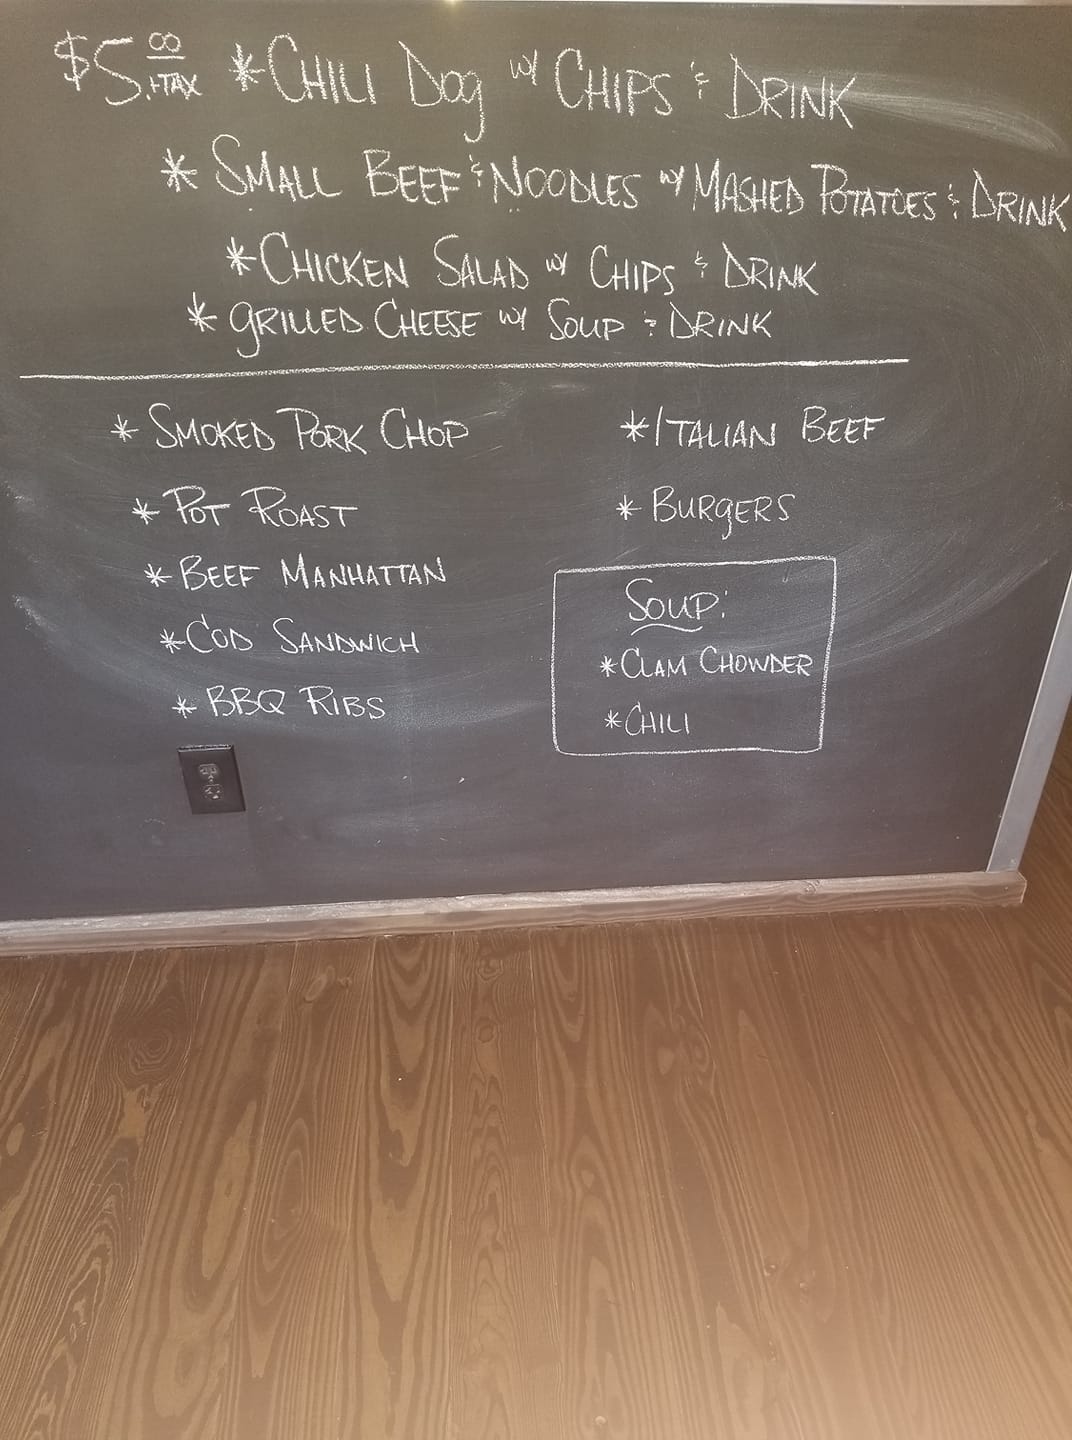 $5.00 +TAX * CHILI DOG w/ CHIPS & DRINK
* SMALL BEEF & NOODLES w/ MASHED POTATOES & DRINK
* CHICKEN SALAD w/ CHIPS & DRINK
* GRILLED CHEESE w/ SOUP & DRINK
* SMOKED PORK CHOP
* POT ROAST
* BEEF MANHATTAN
* COD SANDWICH
* BBQ RIBS
* ITALIAN BEEF
* BURGERS
SOUP:
* CLAM CHOWDER
* CHILI